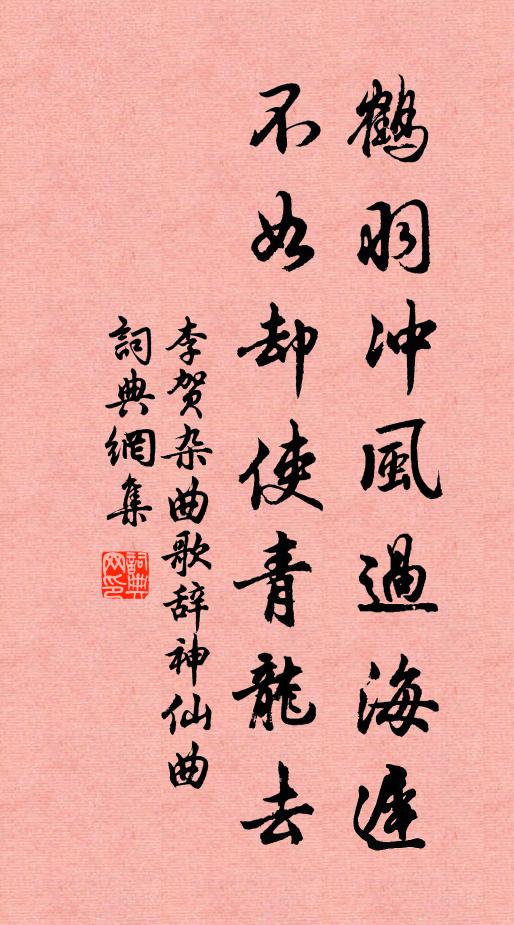 鶴羽沖風過海遲
不如却使青龍去
李贺杂曲歌辞神仙曲
詞典網集
詞典网印